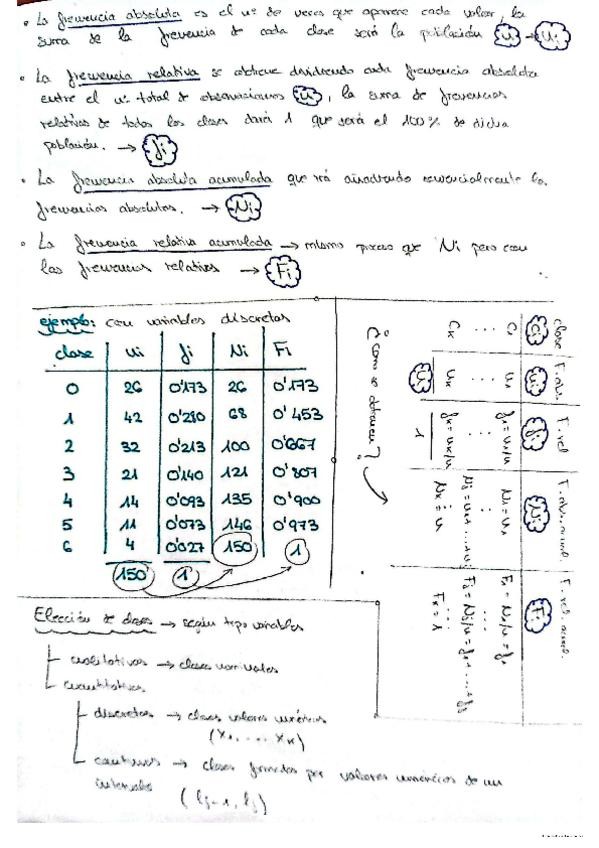 • La frecuencia absoluta es el nº de veces que aparece cada valor, la
suma de la frecuencia de cada clase será la población (n) → ni
• La frecuencia relativa se obtiene dividiendo cada frecuencia absoluta
entre el nº total de observaciones (n), la suma de frecuencias
relativas de todas las clases dará 1 que será el 100% de dicha
población. → fi
• La frecuencia absoluta acumulada que irá añadiendo secuencialmente las
frecuencias absolutas. → Ni
• La frecuencia relativa acumulada → mismo proceso que Ni pero con
las frecuencias relativas → Fi
ejemplo: con variables discretas
clase ni fi Ni Fi
0 26 0'173 26 0'173
1 42 0'280 68 0'453
2 32 0'213 100 0'667
3 21 0'140 121 0'807
4 14 0'093 135 0'900
5 11 0'073 146 0'973
6 4 0'027 150 1
150 1
¿Como se obtienen?
clase F. abs. F. rel F. abs. acum. F. rel. acum.
ci ni fi Ni Fi
c1 n1 f1 = n1/n N1 = n1 F1 = N1/n = f1
... ... ... Nj = n1+...+nj Fj = Nj/n = f1+...+fj
cK nK fK = nK/n NK = n FK = 1
n 1
Elección de clases → según tipo variables
cualitativas → clases nominales
cuantitativas
discretas → clases valores numéricos
(x1, ... xK)
continuas → clases formadas por valores numéricos de un
intervalo (lj-1, lj)